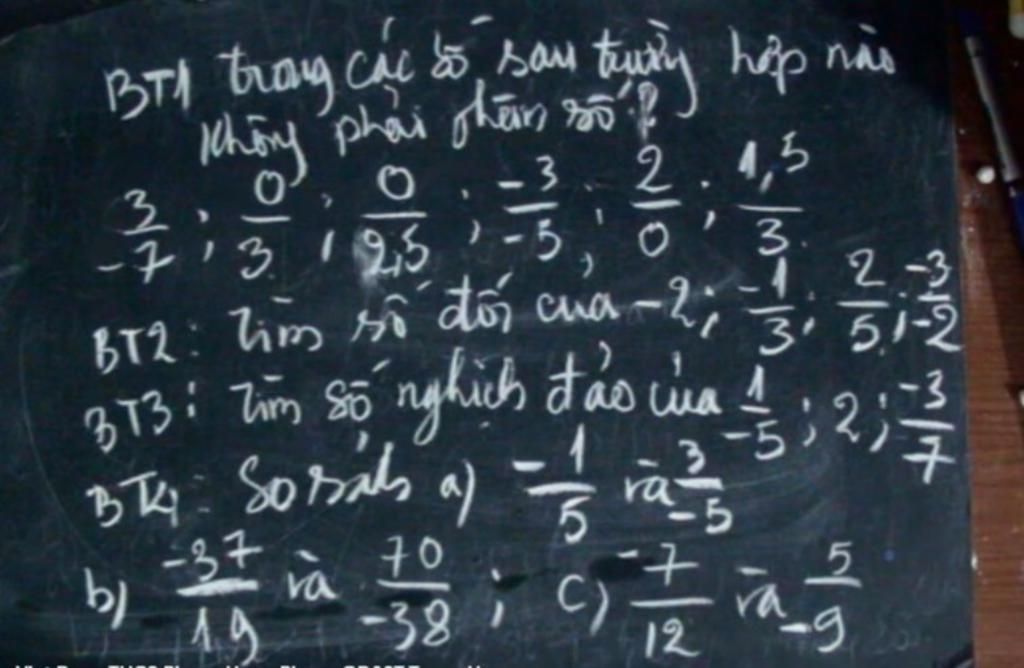 BT1 trong các số sau trường hợp nào
không phải phân số ?
3/-7 ; 0/3 ; 0/2,5 ; -3/-5 ; 2/0 ; 1,5/3
BT2: Tìm số đối của -2; -1/3; 2/5; -3/-2
BT3: Tìm số nghịch đảo của 1/-5 ; 2; -3/7
BT4: So sánh a) -1/5 và 3/-5
b) -37/19 và 70/-38 ; c) -7/12 và 5/-9